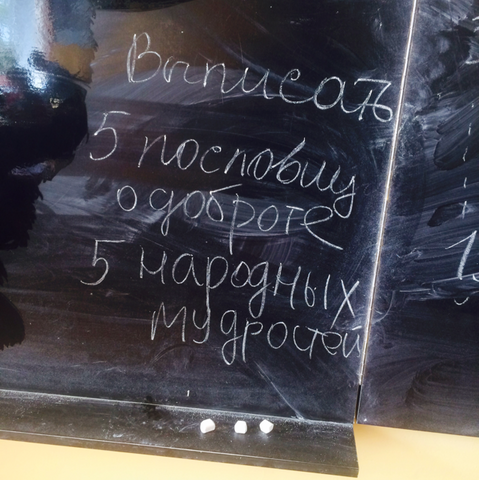 Выписать
5 пословиц
о доброте
5 народных
мудростей